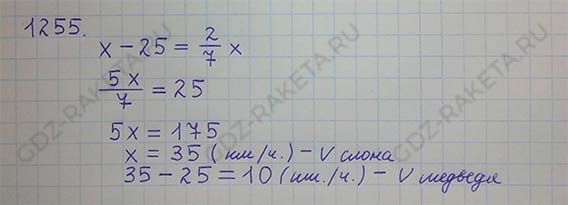 1255.
x - 25 = 2/7 x
5x/7 = 25
5x = 175
x = 35 (км/ч.) - V слона
35 - 25 = 10 (км./ч.) - V медведя
GDZ-RAKETA.RU
GDZ-RAKETA.RU
GDZ-RAKETA.RU
GDZ-RAKETA.RU